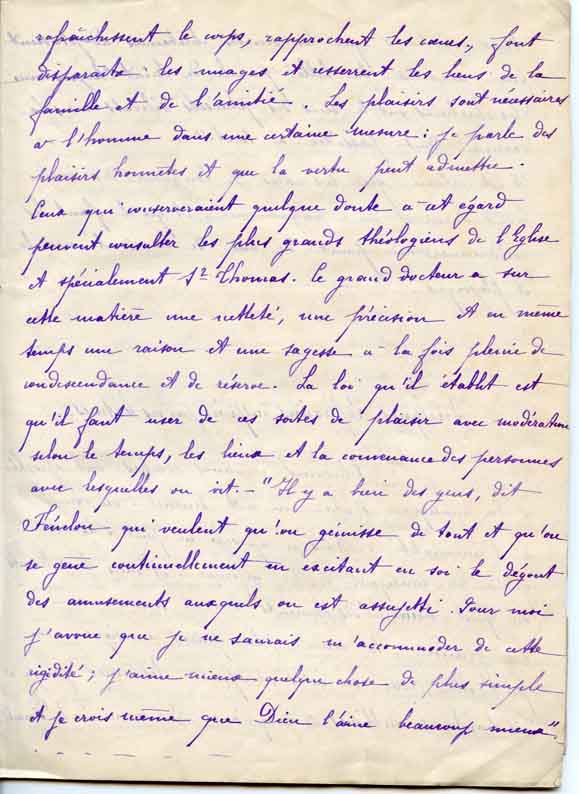 rafraîchissent le corps, rapprochent les cœurs, font
disparaître les nuages et resserrent les liens de la
famille et de l'amitié. Les plaisirs sont nécessaires
à l'homme dans une certaine mesure : je parle des
plaisirs honnêtes et que la vertu peut admettre.
Ceux qui conserveraient quelque doute à cet égard
peuvent consulter les plus grands théologiens de l'Eglise
et spécialement St Thomas. Le grand docteur a sur
cette matière une netteté, une précision et en même
temps une raison et une sagesse à la fois pleine de
condescendance et de réserve. La loi qu'il établit est
qu'il faut user de ces sortes de plaisir avec modération
selon le temps, les lieux et la convenance des personnes
avec lesquelles on vit. - "Il y a bien des gens, dit
Fénelon qui veulent qu'on gémisse de tout et qu'on
se gêne continuellement en excitant en soi le dégout
des amusements auxquels on est assujetti. Pour moi
j'avoue que je ne saurais m'accommoder de cette
rigidité ; j'aime mieux quelque chose de plus simple
et je crois même que Dieu l'aime beaucoup mieux".